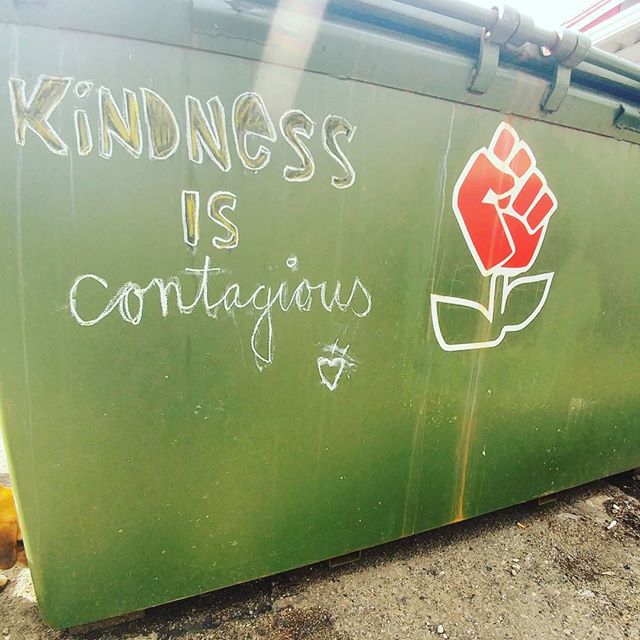 KiNDNeSS
IS
contagious